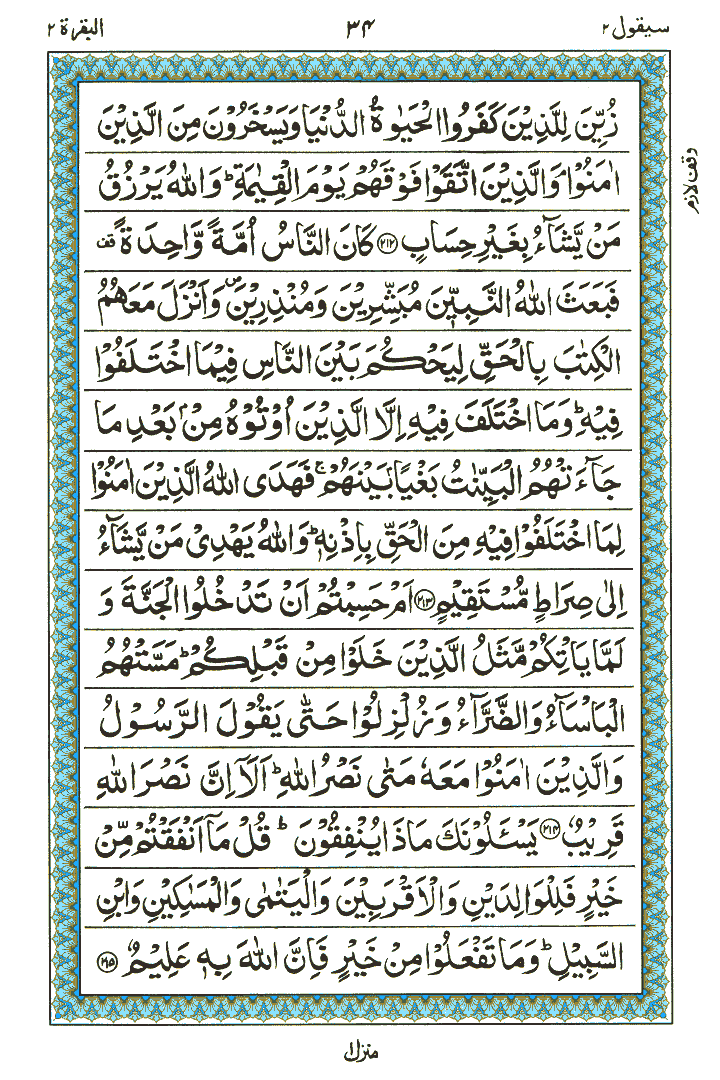 سيقول ٢
٣۴
البقرة ٢
زُيِّنَ لِلَّذِيْنَ كَفَرُوا الْحَيٰوةُ الدُّنْيَا وَيَسْخَرُوْنَ مِنَ الَّذِيْنَ
اٰمَنُوْا ۘ وَالَّذِيْنَ اتَّقَوْا فَوْقَهُمْ يَوْمَ الْقِيٰمَةِ ؕ وَاللّٰهُ يَرْزُقُ
مَنْ يَّشَآءُ بِغَيْرِ حِسَابٍ ﴿٢١٢﴾ كَانَ النَّاسُ اُمَّةً وَّاحِدَةً قف
فَبَعَثَ اللّٰهُ النَّبِيّٖنَ مُبَشِّرِيْنَ وَمُنْذِرِيْنَ ۪ وَاَنْزَلَ مَعَهُمُ
الْكِتٰبَ بِالْحَقِّ لِيَحْكُمَ بَيْنَ النَّاسِ فِيْمَا اخْتَلَفُوْا
فِيْهِ ؕ وَمَا اخْتَلَفَ فِيْهِ اِلَّا الَّذِيْنَ اُوْتُوْهُ مِنْۢ بَعْدِ مَا
جَآءَتْهُمُ الْبَيِّنٰتُ بَغْيًۢا بَيْنَهُمْ ۚ فَهَدَى اللّٰهُ الَّذِيْنَ اٰمَنُوْا
لِمَا اخْتَلَفُوْا فِيْهِ مِنَ الْحَقِّ بِاِذْنِهٖ ؕ وَاللّٰهُ يَهْدِيْ مَنْ يَّشَآءُ
اِلٰى صِرَاطٍ مُّسْتَقِيْمٍ ﴿٢١٣﴾ اَمْ حَسِبْتُمْ اَنْ تَدْخُلُوا الْجَنَّةَ وَ
لَمَّا يَاْتِكُمْ مَّثَلُ الَّذِيْنَ خَلَوْا مِنْ قَبْلِكُمْ ؕ مَسَّتْهُمُ
الْبَاْسَآءُ وَالضَّرَّآءُ وَزُلْزِلُوْا حَتّٰى يَقُوْلَ الرَّسُوْلُ
وَالَّذِيْنَ اٰمَنُوْا مَعَهٗ مَتٰى نَصْرُ اللّٰهِ ؕ اَلَاۤ اِنَّ نَصْرَ اللّٰهِ
قَرِيْبٌ ﴿٢١۴﴾ يَسْـَٔلُوْنَكَ مَاذَا يُنْفِقُوْنَ ؕ قُلْ مَاۤ اَنْفَقْتُمْ مِّنْ
خَيْرٍ فَلِلْوَالِدَيْنِ وَالْاَقْرَبِيْنَ وَالْيَتٰمٰى وَالْمَسٰكِيْنِ وَابْنِ
السَّبِيْلِ ؕ وَمَا تَفْعَلُوْا مِنْ خَيْرٍ فَاِنَّ اللّٰهَ بِهٖ عَلِيْمٌ ﴿٢١۵﴾
وقف لازم
منزل ١